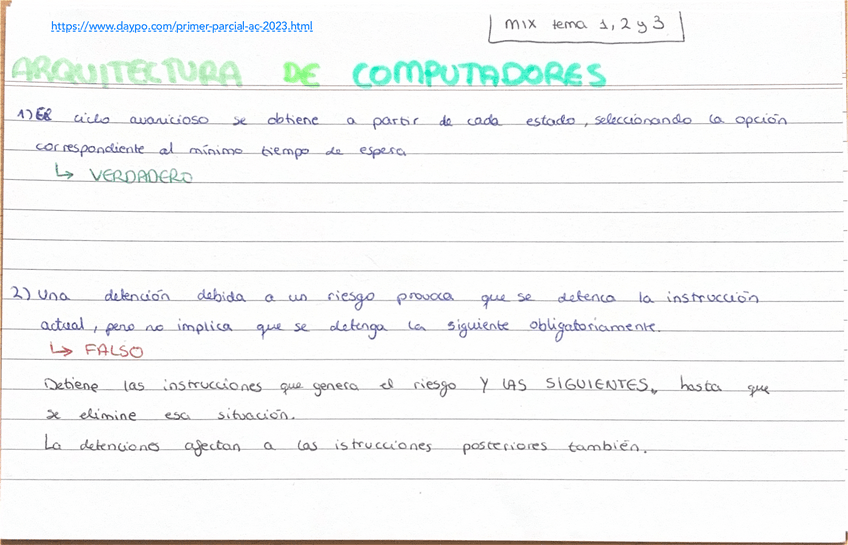 https://www.daypo.com/primer-parcial-ac-2023.html
mix tema 1, 2 y 3
ARQUITECTURA DE COMPUTADORES
1) El ciclo avaricioso se obtiene a partir de cada estado, seleccionando la opción
correspondiente al mínimo tiempo de espera
↳ VERDADERO
2) Una detención debida a un riesgo provoca que se detenca la instrucción
actual, pero no implica que se detenga la siguiente obligatoriamente.
↳ FALSO
Detiene las instrucciones que genera el riesgo Y LAS SIGUIENTES, hasta que
se elimine esa situación.
La detenciones afectan a las istrucciones posteriores también.